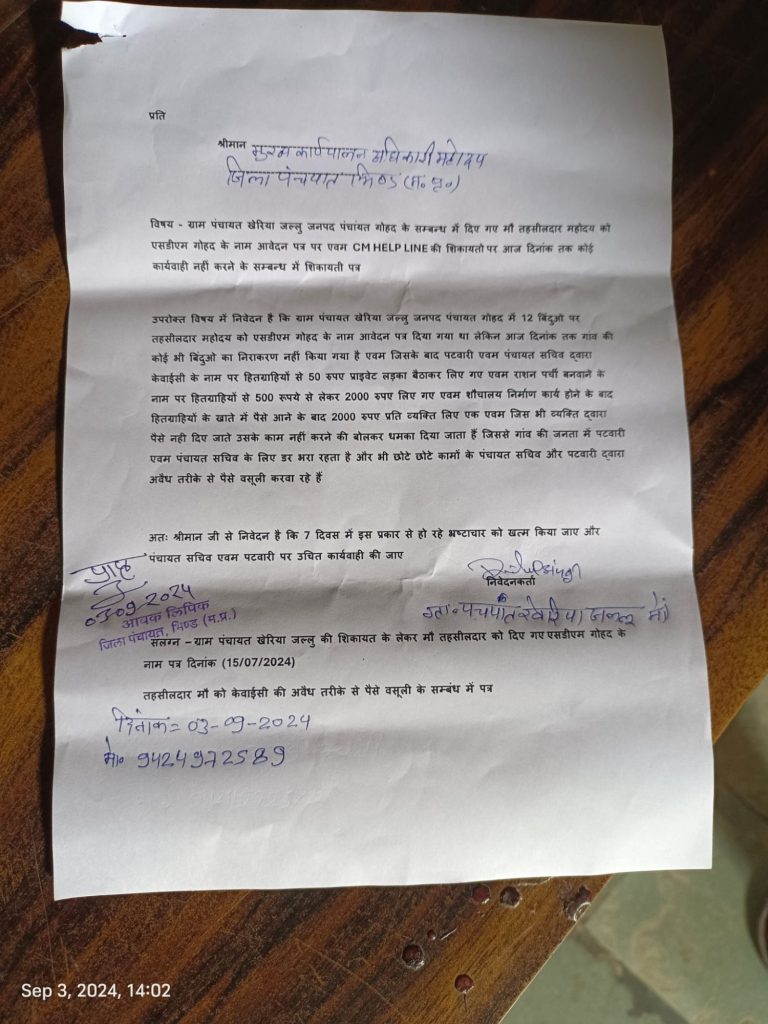 प्रति
श्रीमान मुख्य कार्यपालन अधिकारी महोदय
जिला पंचायत भिण्ड (म.प्र.)
विषय - ग्राम पंचायत खेरिया जल्लु जनपद पंचांयत गोहद के सम्बन्ध में दिए गए मौ तहसीलदार महोदय को
एसडीएम गोहद के नाम आवेदन पत्र पर एवम CM HELP LINE की शिकायतो पर आज दिनांक तक कोई
कार्यवाही नहीं करने के सम्बन्ध में शिकायती पत्र
उपरोक्त विषय में निवेदन है कि ग्राम पंचायत खेरिया जल्लु जनपद पंचायत गोहद में 12 बिंदुओ पर
तहसीलदार महोदय को एसडीएम गोहद के नाम आवेदन पत्र दिया गया था लेकिन आज दिनांक तक गांव की
कोई भी बिंदुओ का निराकरण नहीं किया गया है एवम जिसके बाद पटवारी एवम पंचायत सचिव द्वारा
केवाईसी के नाम पर हितग्राहियों से 50 रुपए प्राइवेट लड़का बैठाकर लिए गए एवम राशन पर्ची बनवाने के
नाम पर हितग्राहियों से 500 रूपये से लेकर 2000 रुपए लिए गए एवम शौचालय निर्माण कार्य होने के बाद
हितग्राहियों के खाते में पैसे आने के बाद 2000 रुपए प्रति व्यक्ति लिए एक एवम जिस भी व्यक्ति द्वारा
पैसे नही दिए जाते उसके काम नहीं करने की बोलकर धमका दिया जाता हैं जिससे गांव की जनता में पटवारी
एवम पंचायत सचिव के लिए डर भरा रहता है और भी छोटे छोटे कामों के पंचायत सचिव और पटवारी द्वारा
अवैध तरीके से पैसे वसूली करवा रहे हैं
अतः श्रीमान जी से निवेदन है कि 7 दिवस में इस प्रकार से हो रहे भ्रष्टाचार को खत्म किया जाए और
पंचायत सचिव एवम पटवारी पर उचित कार्यवाही की जाए
प्राप्त
03-09-2024
आवक लिपिक
जिला पंचायत, भिण्ड (म.प्र.)
निवेदनकर्ता
खेरिया जल्लू
सलग्न – ग्राम पंचायत खेरिया जल्लु की शिकायत के लेकर मौ तहसीलदार को दिए गए एसडीएम गोहद के
नाम पत्र दिनांक (15/07/2024)
तहसीलदार मौ को केवाईसी की अवैध तरीके से पैसे वसूली के सम्बंध में पत्र
दिनांक= 03-09-2024
मो० 9424972589
Sep 3, 2024, 14:02